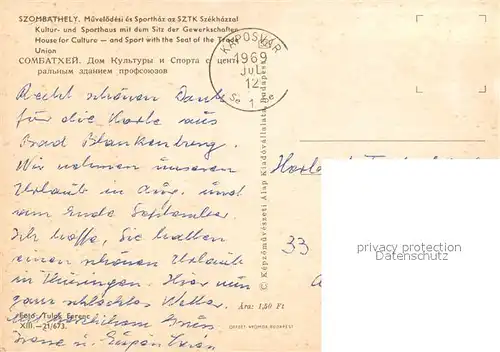 SZOMBATHELY. Művelődési és Sportház az SZTK Székházzal
Kultur- und Sporthaus mit dem Sitz der Gewerkschaften
House for Culture — and Sport with the Seat of the Trade
Union
СОМБАТХЕЙ. Дом Культуры и Спорта с цент-
ральным зданием профсоюзов
KAPOSVÁR
1969
JUL
12
1
Recht schönen Dank
für die Karte aus
Bad Blankenberg.
Wir nehmen unseren
Urlaub in Aug. und
am Ende September.
Ich hoffe, Sie hatten
einen schönen Urlaub
in Thüringen. Hier nun
ganz schlechtes Wetter.
Mit herzlichem Gruss
Irene u.
Foto: Tulok Ferenc
XIII.—21/673.
© Képzőművészeti Alap Kiadóvállalata, Budapest
Ára: 1,50 Ft
OFFSET NYOMDA BUDAPEST
33
privacy protection
DELCAMPE